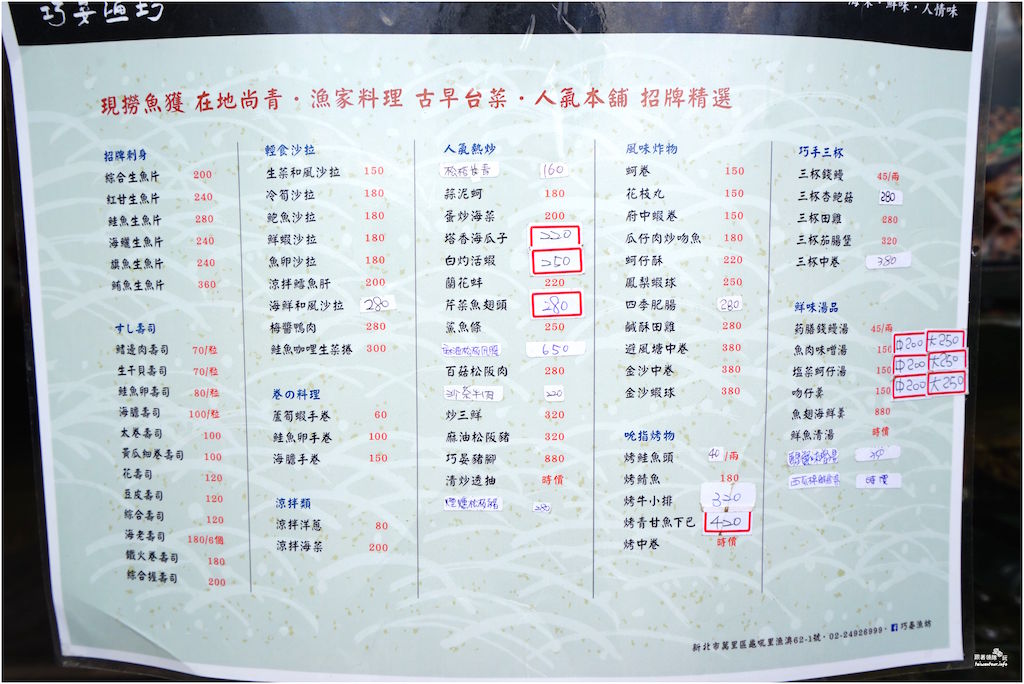 巧晏漁坊
海味・鮮味・人情味
現撈魚獲 在地尚青・漁家料理 古早台菜・人氣本舖 招牌精選
招牌刺身
綜合生魚片 200
紅甘生魚片 240
鮭魚生魚片 280
海鱺生魚片 240
旗魚生魚片 240
鮪魚生魚片 360
すし壽司
鰭邊肉壽司 70/粒
生干貝壽司 70/粒
鮭魚卵壽司 80/粒
海膽壽司 100/粒
太卷壽司 100
黃瓜細卷壽司 100
花壽司 120
豆皮壽司 120
綜合壽司 120
海老壽司 180/6個
鐵火卷壽司 180
綜合握壽司 200
輕食沙拉
生菜和風沙拉 150
冷筍沙拉 180
鮑魚沙拉 180
鮮蝦沙拉 180
魚卵沙拉 180
涼拌鱈魚肝 200
海鮮和風沙拉 280
梅醬鴨肉 280
鮭魚咖哩生菜捲 300
卷の料理
蘆筍蝦手卷 60
鮭魚卵手卷 100
海膽手卷 150
涼拌類
涼拌洋蔥 80
涼拌海菜 200
人氣熱炒
160
蒜泥蚵 180
蛋炒海菜 200
塔香海瓜子 220
白灼活蝦 250
蘭花蚌 220
芹菜魚翅頭 280
鯊魚條 250
650
百菇松阪肉 280
沙茶牛肉 220
炒三鮮 320
麻油松阪豬 320
巧晏豬腳 880
清炒透抽 時價
280
風味炸物
蚵卷 150
花枝丸 150
府中蝦卷 150
瓜仔肉炒吻魚 180
蚵仔酥 220
鳳梨蝦球 250
四季肥腸 280
鹹酥田雞 280
避風塘中卷 380
金沙中卷 380
金沙蝦球 380
炭指烤物
烤鮭魚頭 40/兩
烤鯖魚 180
烤牛小排 320
烤青甘魚下巴 420
烤中卷 時價
巧手三杯
三杯錢鰻 45/兩
三杯杏鮑菇 280
三杯田雞 280
三杯茄腸煲 320
三杯中卷 380
鮮味湯品
藥膳錢鰻湯 45/兩
魚肉味噌湯 150 中200 大250
塩菜蚵仔湯 150 中200 大250
吻仔羹 150 中200 大250
魚翅海鮮羹 880
鮮魚清湯 時價
時價
新北市萬里區龜吼里漁澳62-1號・02-24926999・巧晏漁坊
跟著領隊玩
taiwantour.info